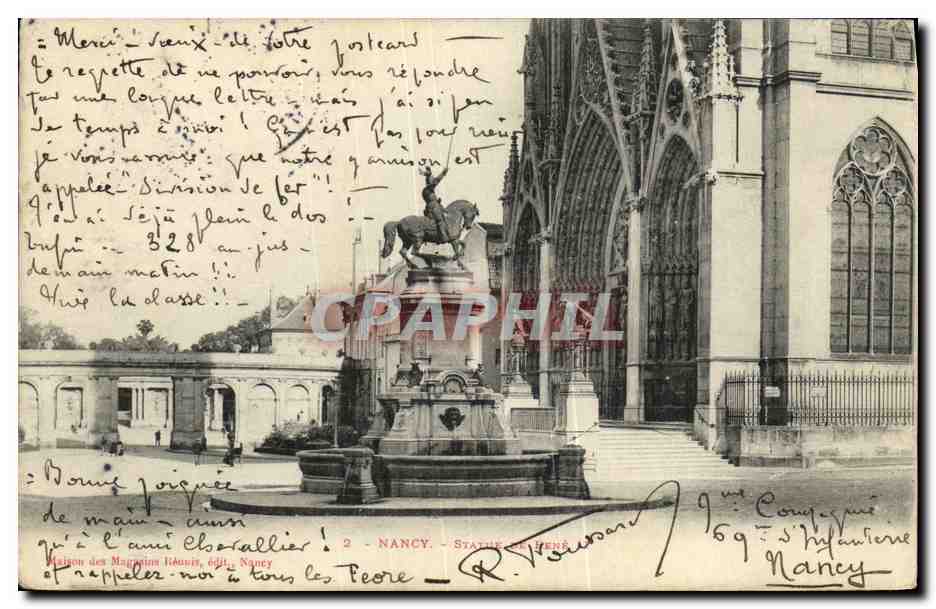 = Merci - vieux - de votre postcard
Je regrette de ne pouvoir, vous répondre
par une longue lettre - mais j'ai si peu
de temps à moi ! Ça n'est pas pour rien
je vous assure - que notre garnison est
appelée "Division de fer"! -
J'en ai déjà plein le dos ! -
Enfin - 328 au jus -
demain matin !!
Vive la classe !! -
CPAPHIL.com
Bonne poignée
de main - aussi
qu'à l'ami Chevallier !
et rappelez-moi à tous les
R. Poussard
9me Compagnie
69e d'Infanterie
Nancy
2 - NANCY. - STATUE DE RENÉ
Maison des Magasins Réunis, édit., Nancy